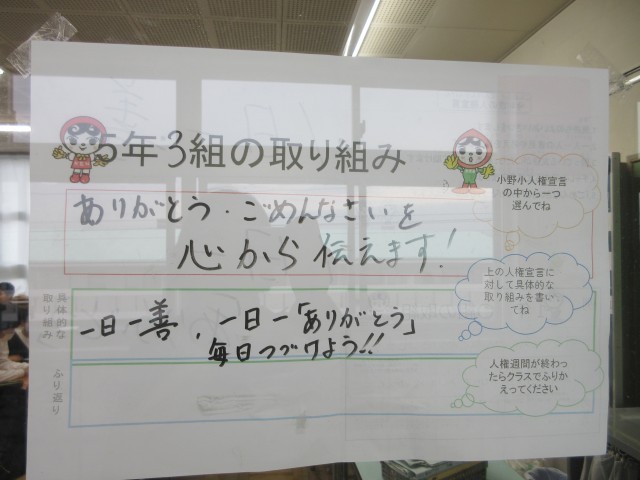 5年3組の取り組み
小野小人権宣言
の中から一つ
選んでね
ありがとう・ごめんなさいを
心から伝えます!
上の人権宣言に
対して具体的な
取り組みを書い
てね
具体的な
取り組み
一日一善、一日一「ありがとう」
毎日つづけよう!!
人権週間が終わっ
たらクラスでふりか
えってください
ふり返り